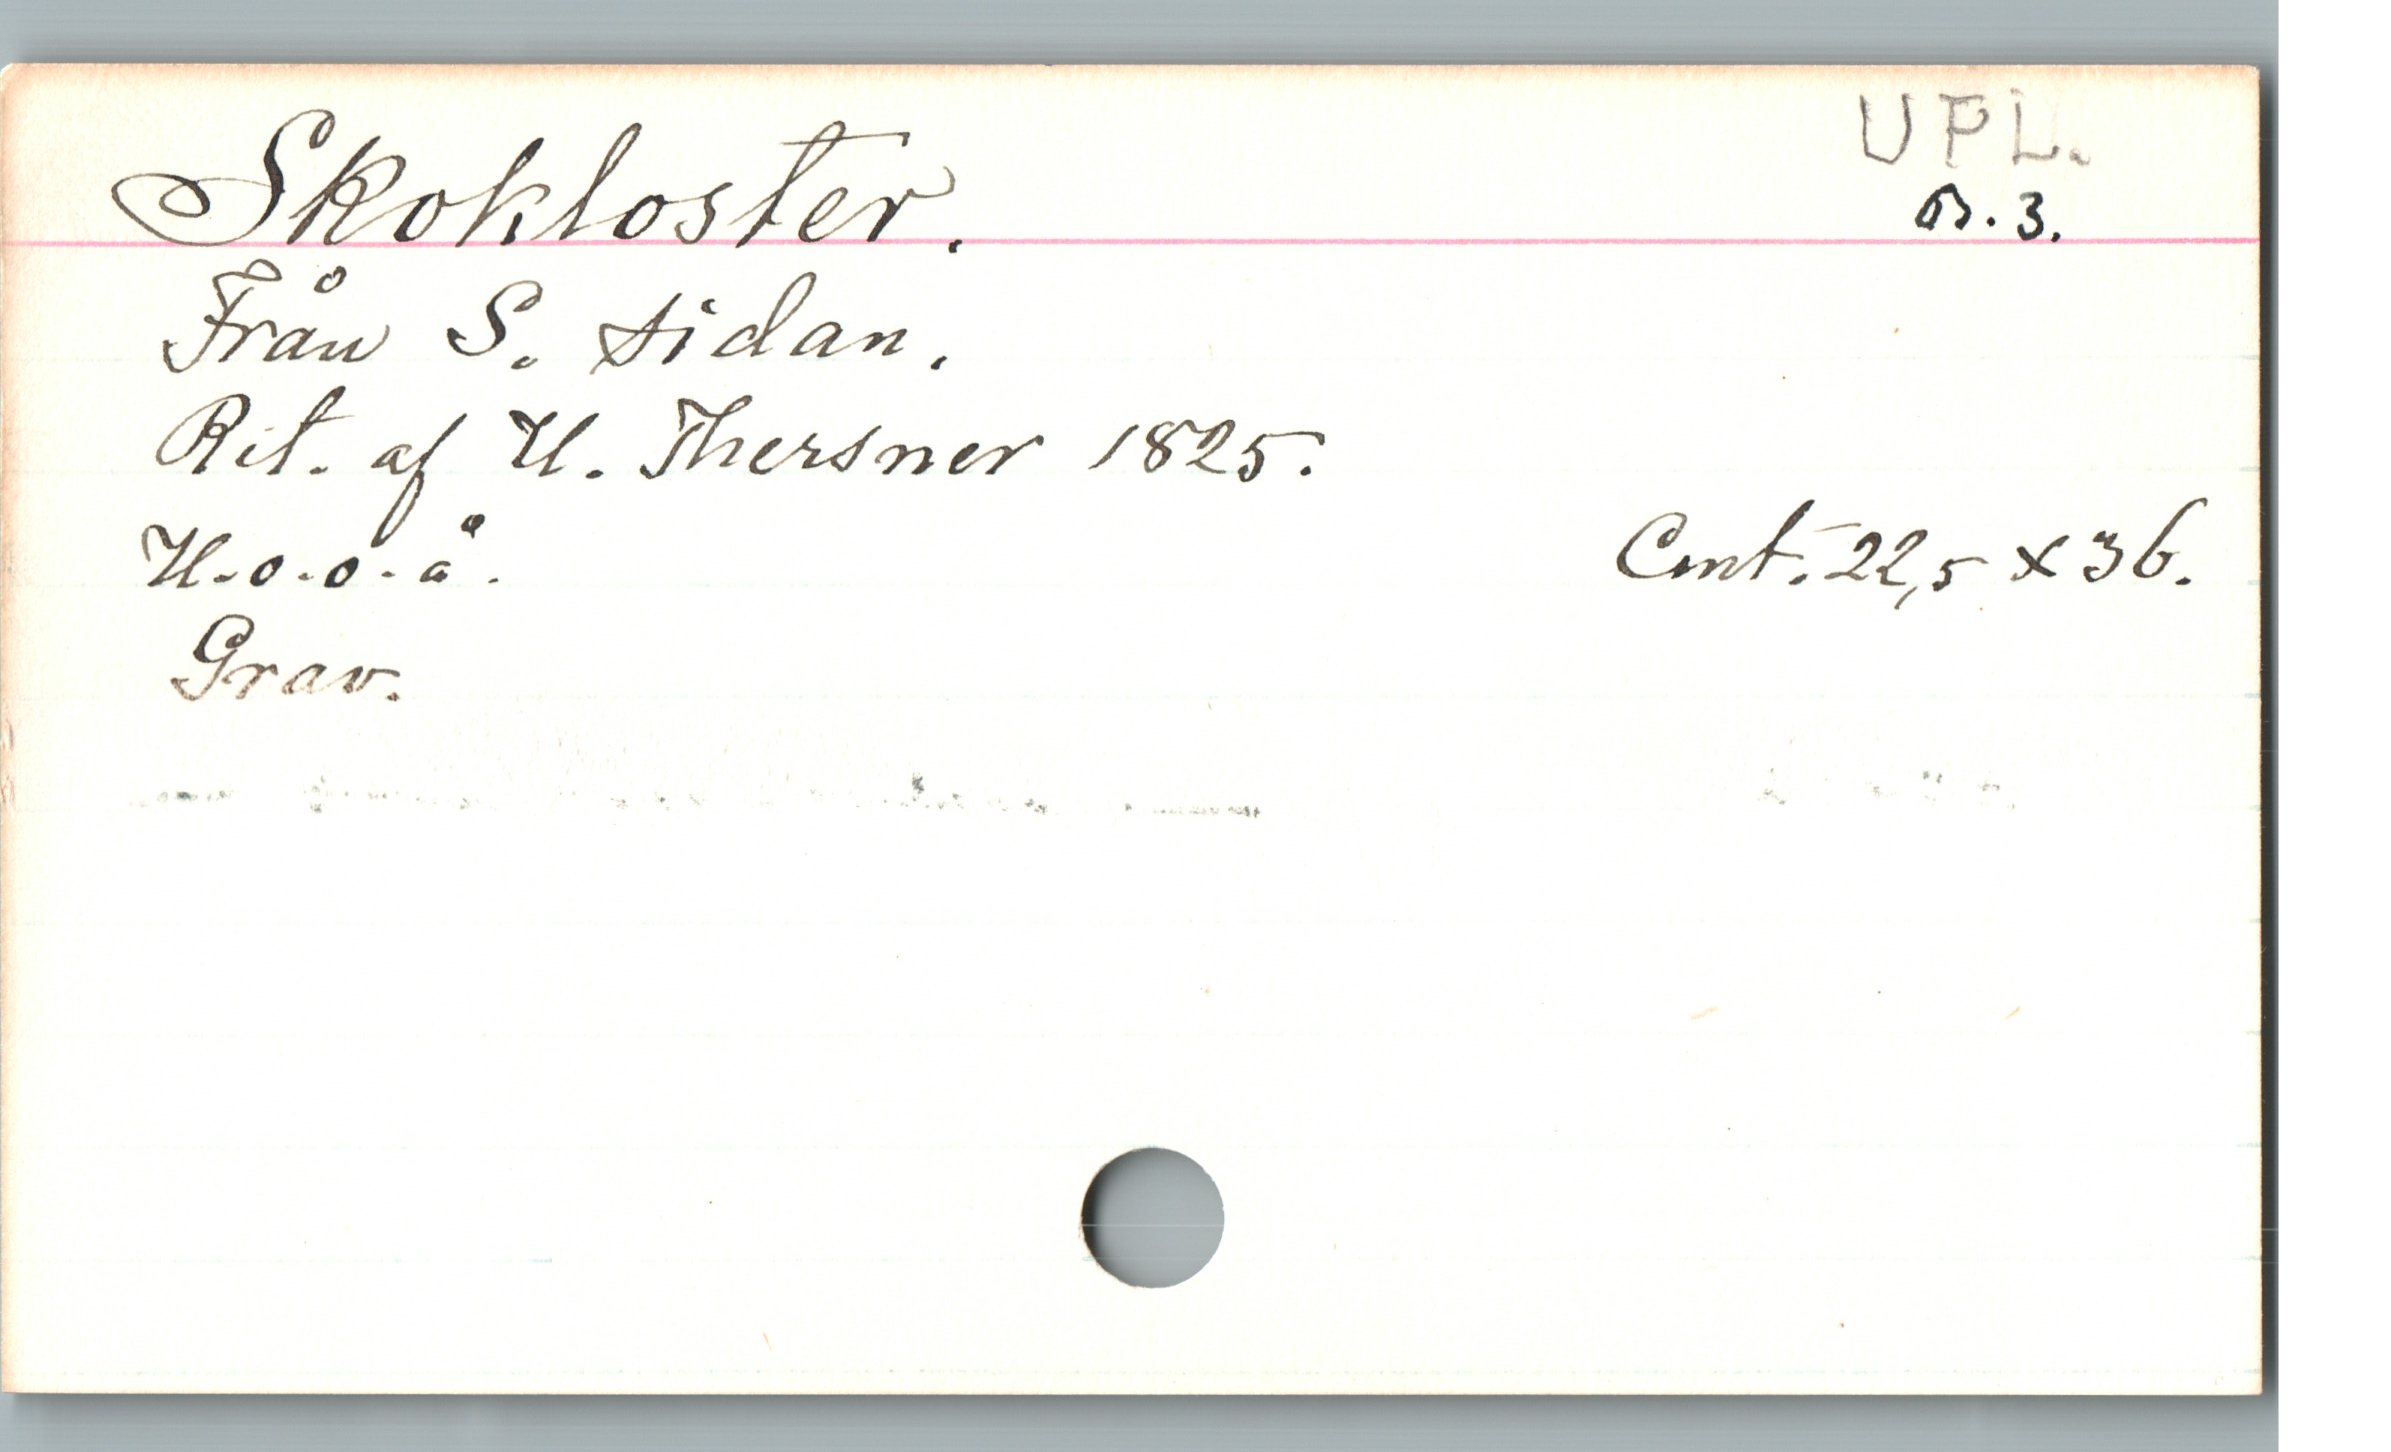 Skokloster.
UPL.
B. 3.
Från S. sidan.
Rit. af U. Thersner 1825.
U. o. o. å.
Cmt. 22,5 x 36.
Grav.